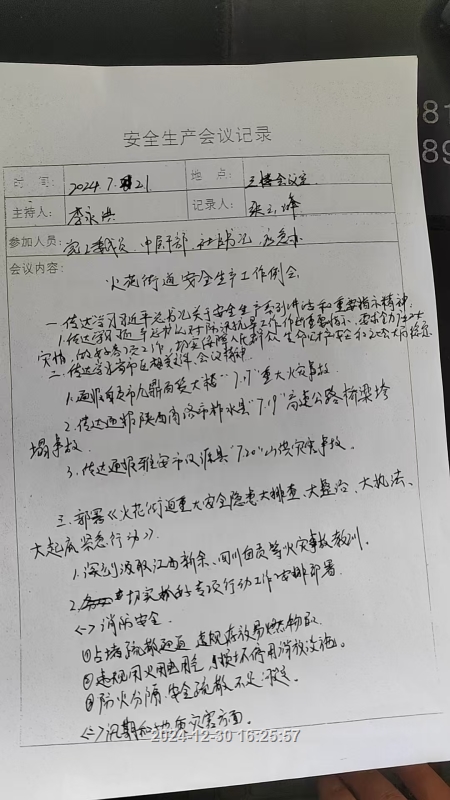 安全生产会议记录
时 间: 2024.7.21 地 点: 三楼会议室
主持人: 李永洪 记录人:
参加人员: 党工委成员 中层干部 社区书记
会议内容: 火花街道安全生产工作例会
一、传达学习习近平总书记关于安全生产系列讲话和重要指示精神.
1.传达学习习近平总书记对防汛抗旱工作作出重要指示,要求全力
灾情 的各项工作,切实保障人民群众生命财产安全和社会大局稳定
二、传达学习省市区相关文件会议精神.
1.通报自贡市九鼎百货大楼“7.17”重大火灾事故
2.传达通报陕西商洛市柞水县“7.19”高速公路桥梁垮
塌事故.
3.传达通报雅安市汉源县“7.20”山洪灾害事故.
三、部署《火花街道重大安全隐患大排查、大整治、大执法、
大起底紧急行动》.
1.深刻汲取江西新余、四川自贡等火灾事故教训.
2.切实抓好专项行动工作安排部署.
<一>消防安全.
①占堵疏散通道 违规存放易燃物品
②违规用火用电用气、损坏停用消防设施.
③防火分隔、安全疏散不足
<二>汛期和地质灾害方面.
2024-12-30 16:25:57